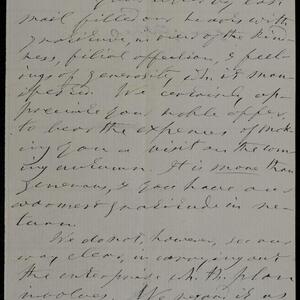 mail filled our hearts with
gratitude, in view of the kind-
ness, filial affection, & feel-
ings of generosity wh. it man-
ifested. We certainly ap-
preciate your noble offer,
to bear the expenses of mak-
ing you a visit in the com-
ing autumn. It is more than
generous, & you have our
warmest gratitude in re-
turn.
We do not, however, see our
way clear, in carrying out
the enterprise wh. the plan
involves. We